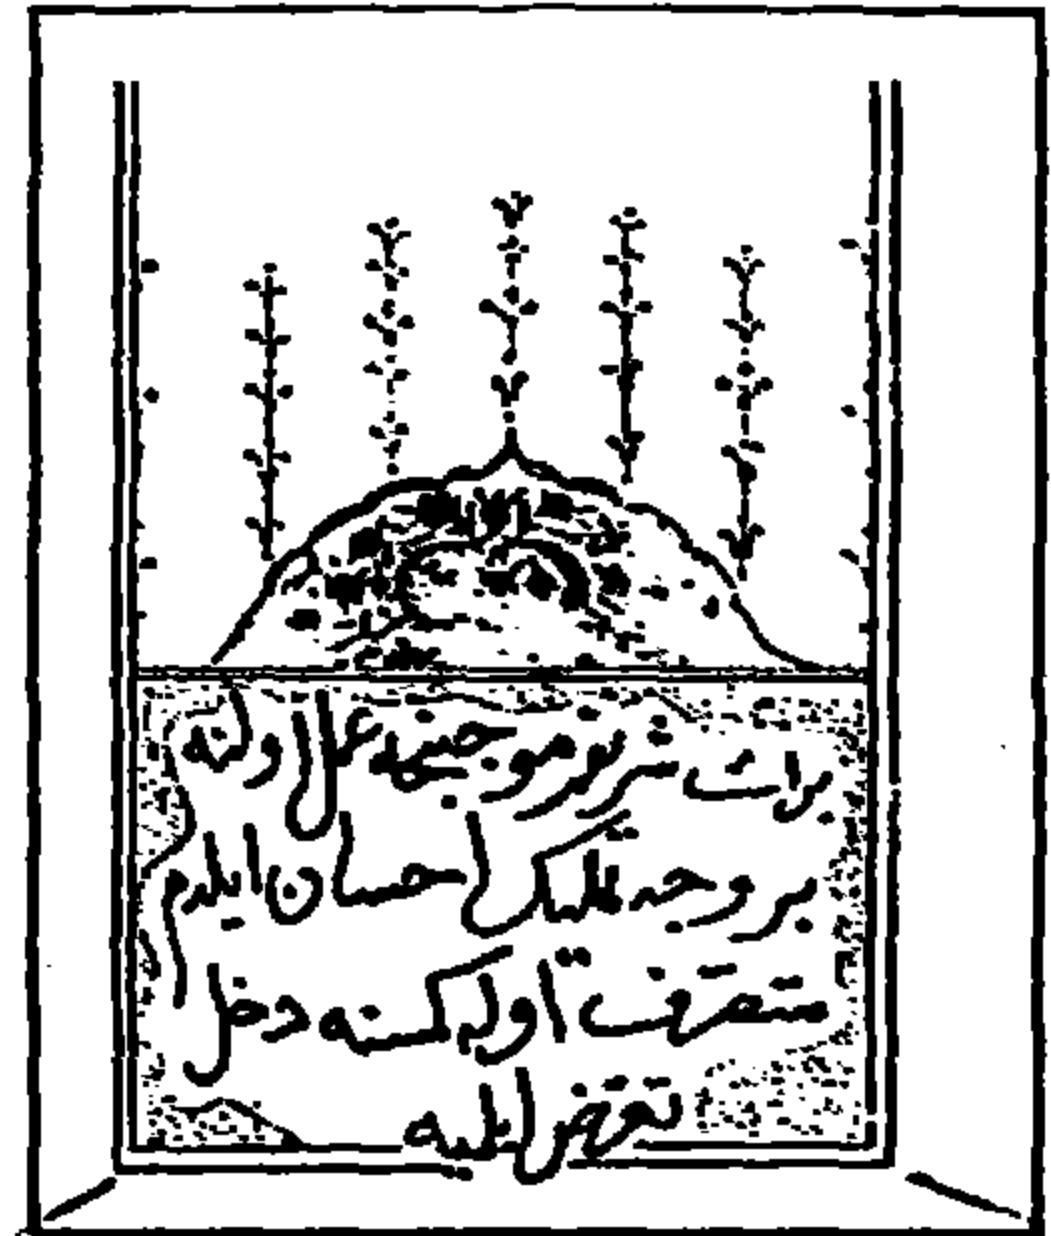 برات شریفم موجبنجه عمل اولنه
بر وجه تملیك احسان ایلدم
متصرف اوله کسنه دخل
تعرض ایلیه